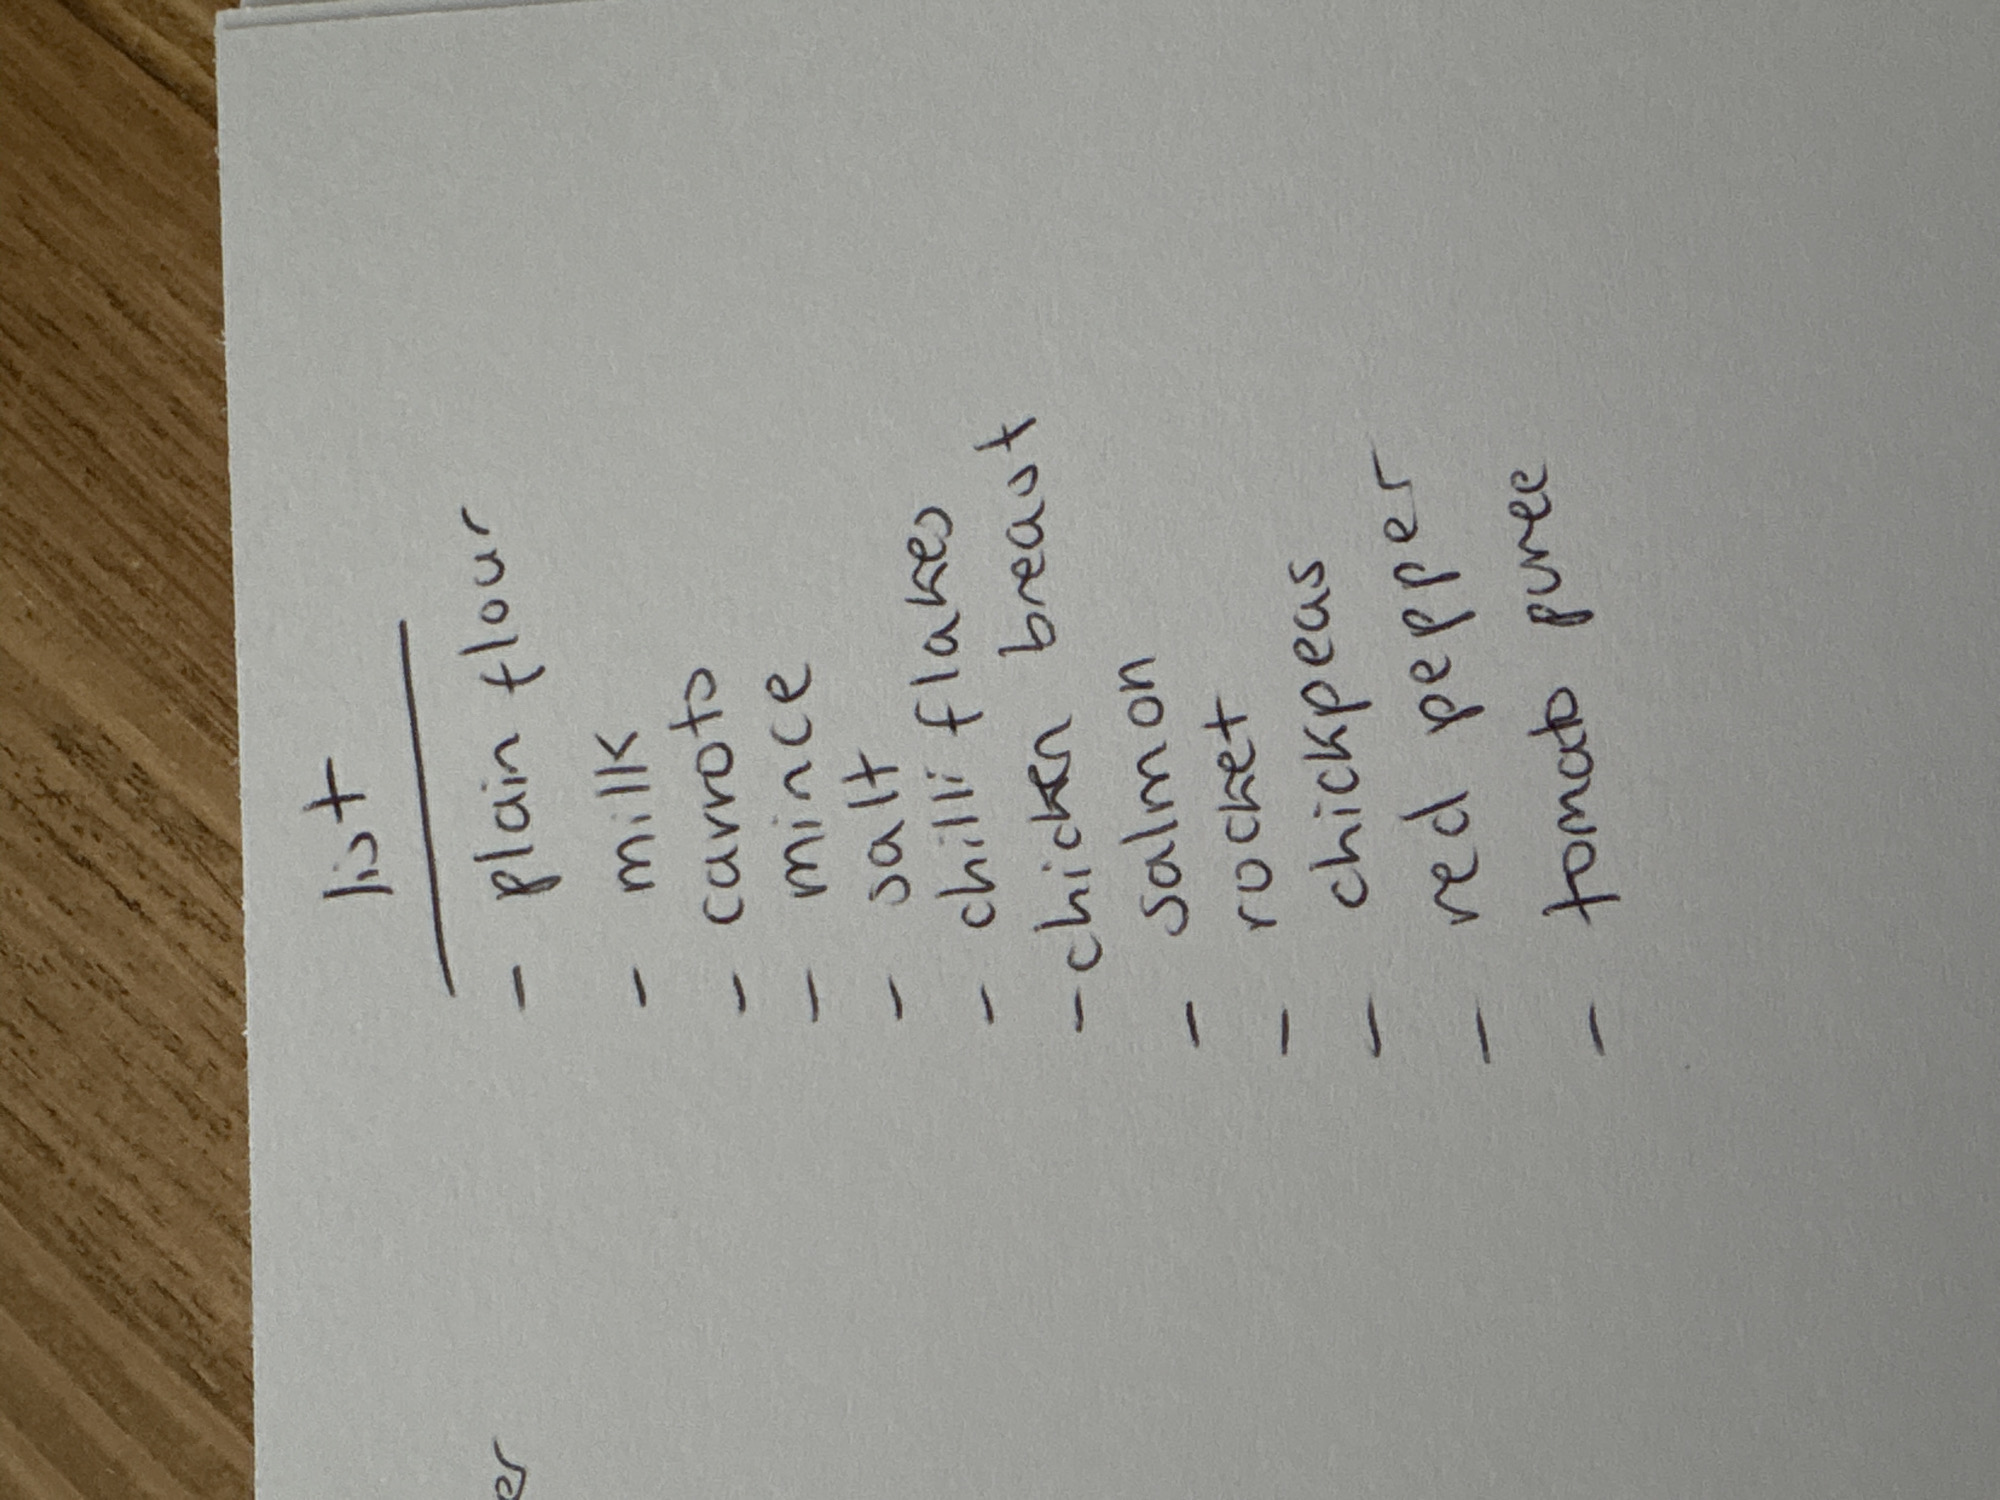 list
- plain flour
- milk
- carrots
- mince
- salt
- chilli flakes
- chicken breast
- salmon
- rocket
- chickpeas
- red pepper
- tomato puree
er